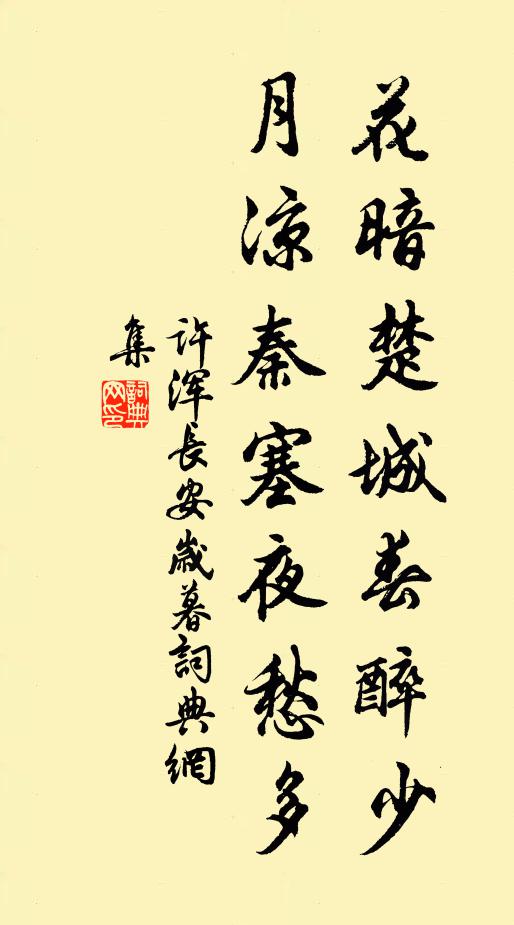 花暗楚城春醉少
月凉秦塞夜愁多
许浑长安歲暮詞典網
集
詞典網印